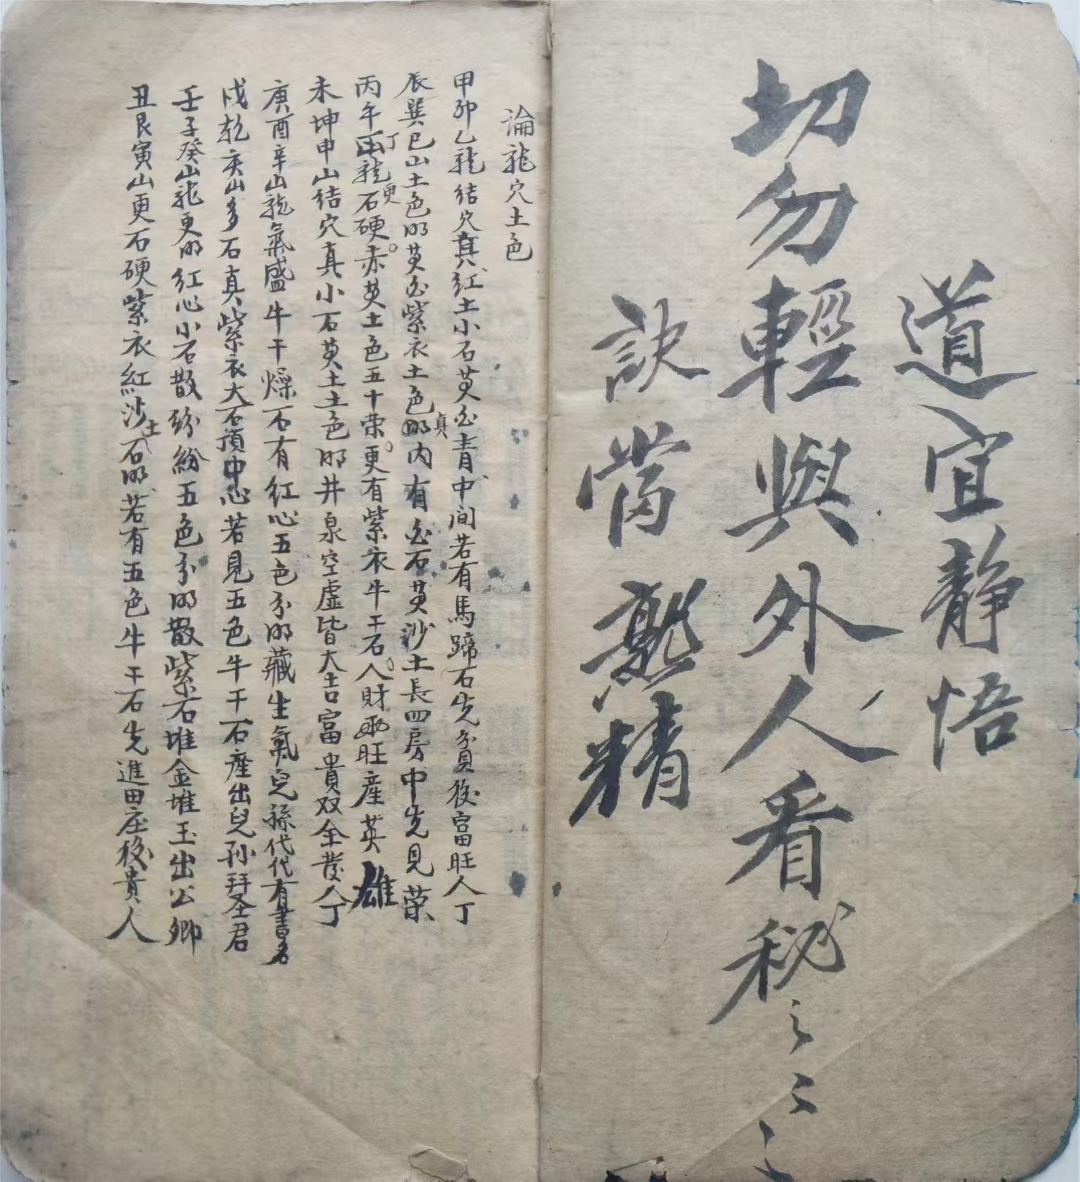 道宜静悟
切勿輕與外人看秘〻〻〻
訣當熟精
論龍穴土色
甲卯乙龍结穴真红土小石黄白青中间若有馬蹄石先貧後富旺人丁
辰巽巳山土色明黄白紫衣土色明真内有白石黄沙土長四房中先見荣
丙午丁龍石更硬。赤黄土色五十荣。更有紫衣牛干石。人財两旺産英雄
未坤申山结穴真小石黄土土色明井泉空虚皆大吉富貴双全發人丁
庚酉辛山龍氣盛牛干燥石有红心五色分明藏生氣兒孫代代有書名
戌乾亥山多石真紫衣大石頂中心若見五色牛干石産出兒孙拜圣君
壬子癸山龍更明红心小石散纷紛五色分明散紫石堆金堆玉出公卿
丑艮寅山更石硬紫衣紅沙土石明若有五色牛干石先進田庄後貴人